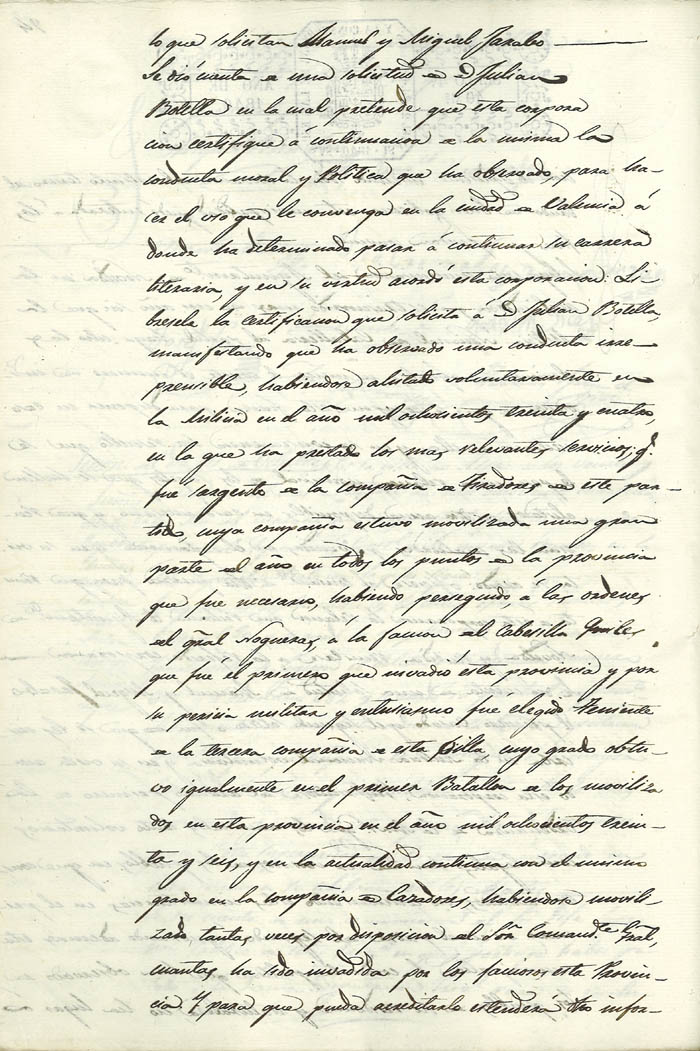 lo que solicitan Manuel y Miguel Jarabo
Se dió cuenta de una solicitud de D. Julian
Botella en la cual pretende que esta corpora
cion certifique á continuacion de la misma la
conducta moral y Politica que ha observado, para ha-
cer el uso que le convenga en la ciudad de Valencia á
donde ha determinado pasar á continuar su carrera
literaria, y en su virtud acordó esta corporacion: Li-
bresele la certificacion que solicita á D. Julian Botella,
manifestando que ha observado una conducta irre-
prensible, habiendose alistado voluntariamente en
la Milicia en el año mil ochocientos treinta y cuatro,
en la que ha prestado los mas relevantes servicios; q.
fué sargento de la compañia de Tiradores de este par-
tido, cuya compañia estuvo movilizada una gran
parte del año en todos los puntos de la provincia
que fue necesario, habiendo perseguido, á las ordenes
del gral Nogueras, á la facion del Cabesilla Quiles
que fué el primero que invadió esta provincia y por
su pericia militar y entusiasmo fué elegido Teniente
de la tercera compañia de esta Villa, cuyo grado obtu-
vo igualmente en el primer Batallon de los moviliza
dos en esta provincia en el año mil ochocientos trein-
ta y seis, y en la actualidad continua con el mismo
grado en la compañia de Cazadores, habiendose movili-
zado tantas veces por disposicion del Sor. Comand.te Gral,
cuantas ha sido invadida por los faciosos esta Provin-
cia Y para que pueda acreditarlo estenderá infor-